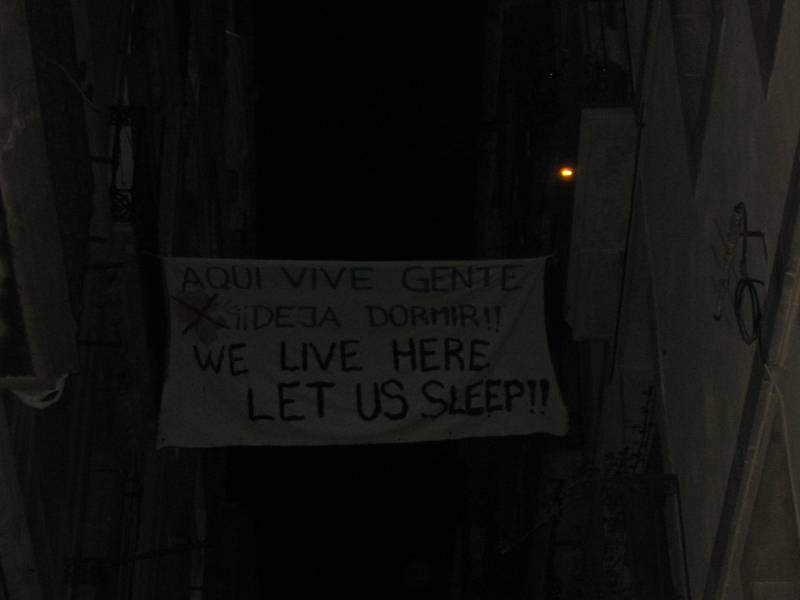 AQUI VIVE GENTE
¡¡DEJA DORMIR!!
WE LIVE HERE
LET US SLEEP!!